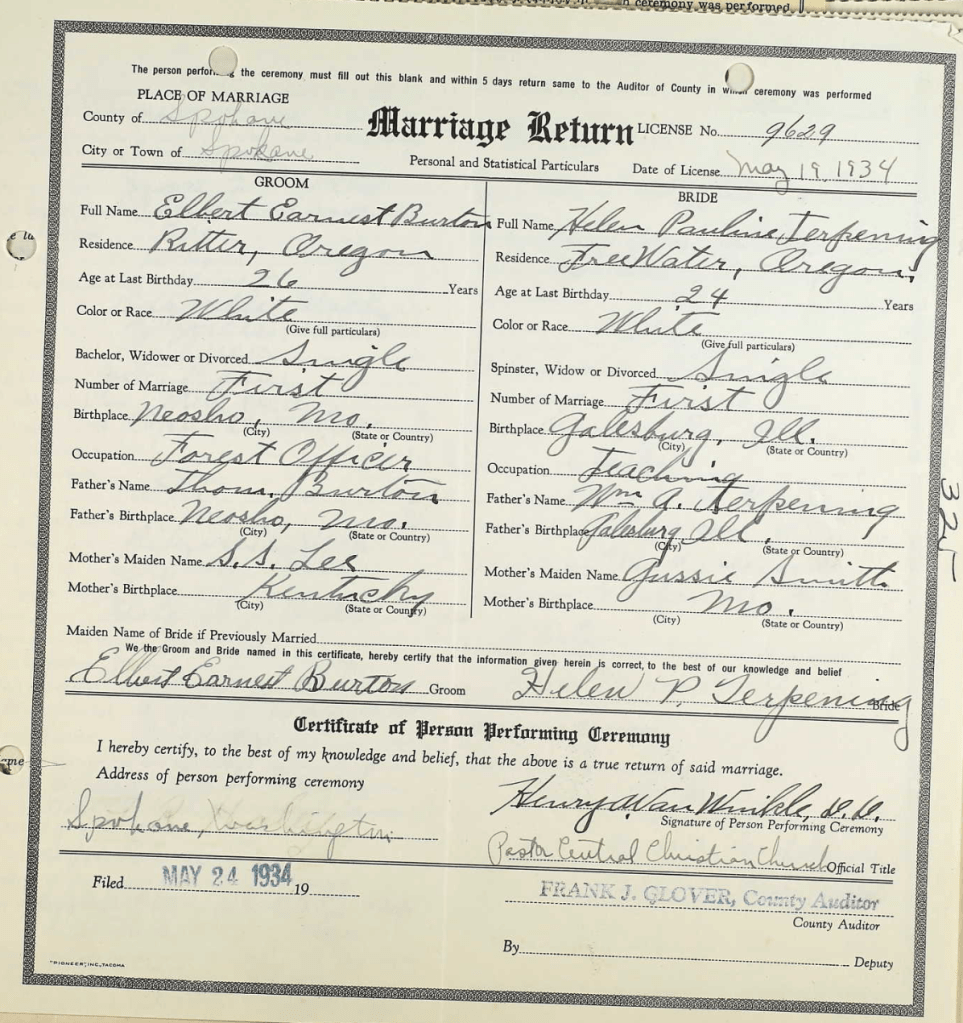 n ceremony was performed.
The person performing the ceremony must fill out this blank and within 5 days return same to the Auditor of County in which ceremony was performed
PLACE OF MARRIAGE
County of Spokane
Marriage Return
LICENSE No. 9629
City or Town of Spokane
Personal and Statistical Particulars
Date of License May 19, 1934
GROOM
Full Name Elbert Earnest Burton
Residence Ritter, Oregon
Age at Last Birthday 26 Years
Color or Race White
(Give full particulars)
Bachelor, Widower or Divorced Single
Number of Marriage First
Birthplace Neosho, Mo.
(City) (State or Country)
Occupation Forest Officer
Father's Name Thom. Burton
Father's Birthplace Neosho, Mo.
(City) (State or Country)
Mother's Maiden Name S.S. Lee
Mother's Birthplace Kentucky
(City) (State or Country)
BRIDE
Full Name Helen Pauline Terpening
Residence FreeWater, Oregon.
Age at Last Birthday 24 Years
Color or Race White
(Give full particulars)
Spinster, Widow or Divorced Single
Number of Marriage First
Birthplace Galesburg, Ill.
(City) (State or Country)
Occupation Teaching
Father's Name Wm A. Terpening
Father's Birthplace Galesburg, Ill.
(City) (State or Country)
Mother's Maiden Name Gussie Smith
Mother's Birthplace Mo.
(City) (State or Country)
325
Maiden Name of Bride if Previously Married
We the Groom and Bride named in this certificate, hereby certify that the information given herein is correct, to the best of our knowledge and belief
Elbert Earnest Burton Groom Helen P. Terpening Bride
Certificate of Person Performing Ceremony
I hereby certify, to the best of my knowledge and belief, that the above is a true return of said marriage.
Address of person performing ceremony
Henry W. Van Winkle, D.D.
Signature of Person Performing Ceremony
Spokane, Washington
Pastor Central Christian Church Official Title
Filed MAY 24 1934 19
FRANK J. GLOVER, County Auditor
County Auditor
By Deputy
"PIONEER", INC., TACOMA